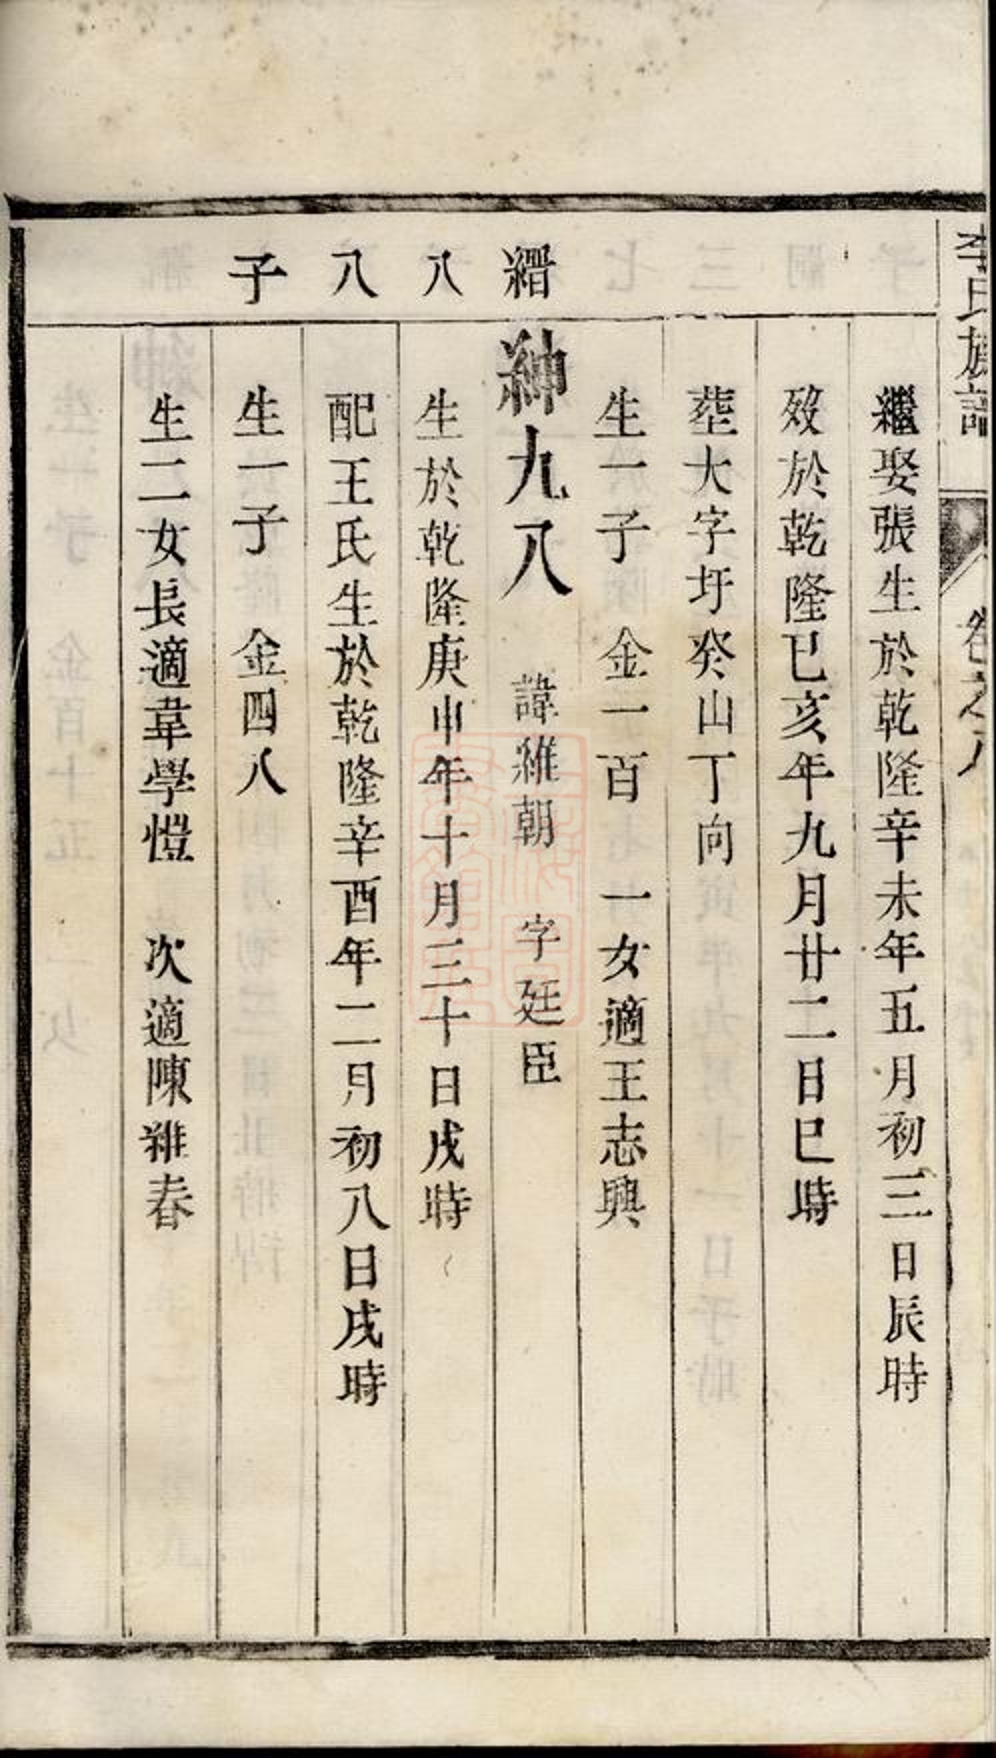 李氏族譜 卷之八
繼娶張生於乾隆辛未年五月初三日辰時
歿於乾隆已亥年九月廿二日巳時
塟大字圩癸山丁向
生一子 金一百 一女適王志興
縉 紳九八 諱維朝 字廷臣
八 生於乾隆庚申年十月三十日戌時
八 配王氏生於乾隆辛酉年二月初八日戌時
子 生一子 金四八
生二女長適韋學愷 次適陳維春